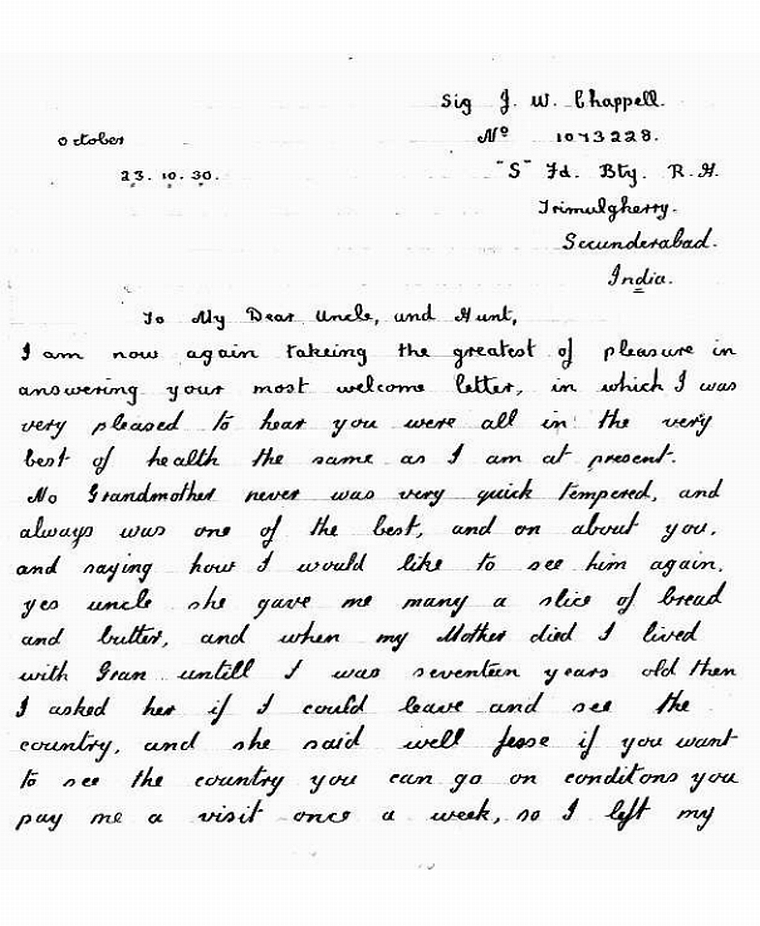 Sig J. W. Chappell.
October
Nº 1073228.
23. 10. 30.
"S" Fd. Bty. R. A.
Trimulgherry.
Secunderabad.
India.
To My Dear Uncle, and Aunt,
I am now again takeing the greatest of pleasure in
answering your most welcome letter, in which I was
very pleased to hear you were all in the very
best of health the same as I am at present.
No Grandmother never was very quick tempered, and
always was one of the best, and on about you,
and saying how I would like to see him again,
yes uncle she gave me many a slice of bread
and butter, and when my Mother died I lived
with Gran untill I was seventeen years old then
I asked her if I could leave and see the
country, and she said well Jesse if you want
to see the country you can go on conditons you
pay me a visit once a week, so I left my